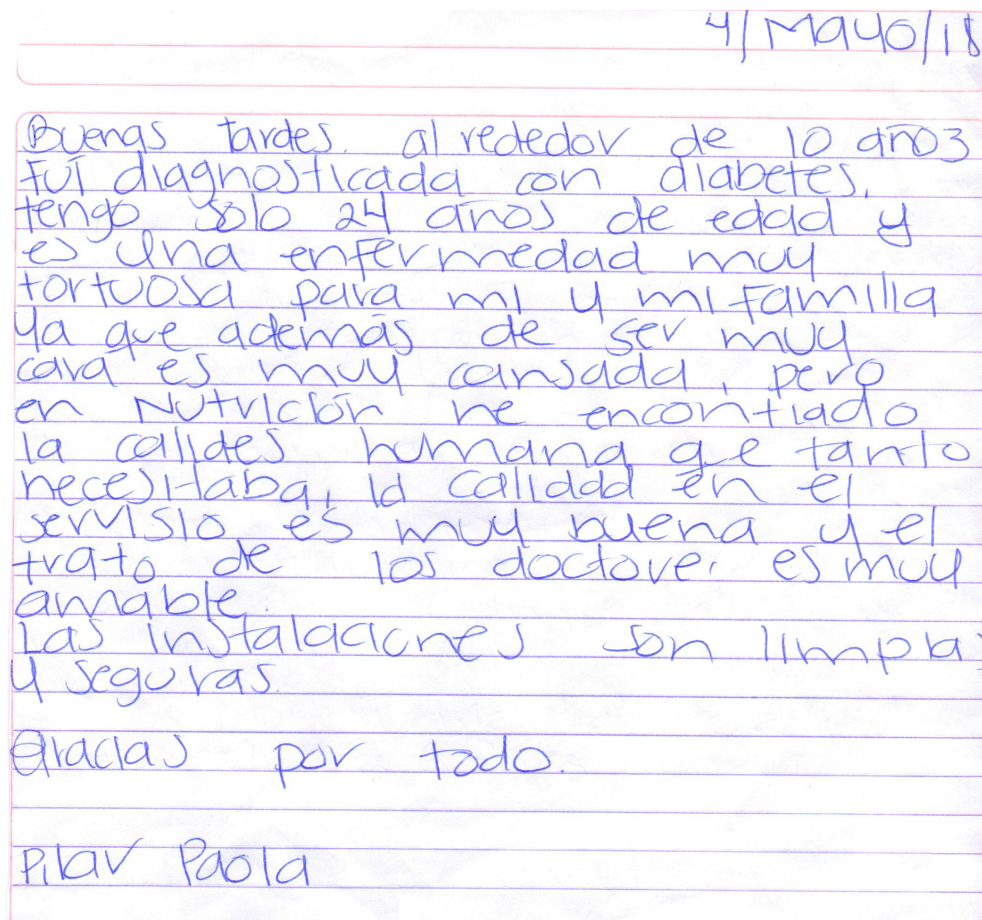 4/Mayo/18
Buenas tardes. al rededor de 10 años
fuí diagnosticada con diabetes,
tengo solo 24 años de edad y
es una enfermedad muy
tortuosa para mi y mi familia
ya que además de ser muy
cara es muy cansada, pero
en Nutrición he encontrado
la calides humana que tanto
necesitaba, la calidad en el
servisio es muy buena y el
trato de los doctores es muy
amable.
Las instalaciones son limpias
y seguras.
Gracias por todo.
Pilar Paola